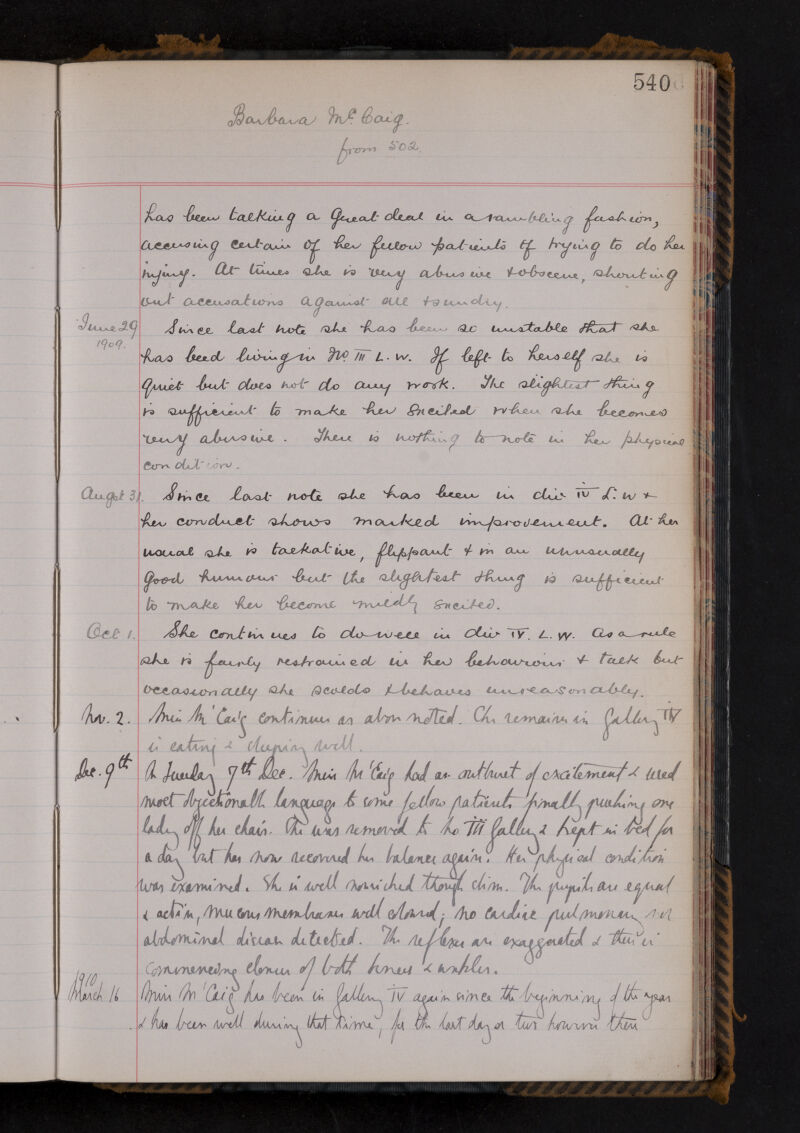 540
Barbara McCaig.
from 502.
has been talking a great deal in a rambling fashion,
accusing certain of her fellow patients of trying to do her
injury. At times she is very abusive & obscene, shouting
out accusations against all & sundry.
June 29 Since last note she has been so unstable that she
1909. has beed living in No III L.W. If left to herself she is
quiet but does not do any work. The slightest thing
is sufficient to make her excited when she becomes
very abusive. There is nothing to note in her physical
condition.
Augst 31. Since last note she has been in div IV L.W &
her conduct shows marked improvement. At her
usual she is talkative, flippant & in an unusually
good humour but the slightest thing is sufficient
to make her become mildly excited.
Oct 1. She continues to do well in div IV. L.W. As a rule
she is fairly restrained in her behaviour & talk but
occasionally she scolds & behaves unreasonably.
Nov. 2. Miss McCaig continues as above noted. She remains in Gallery IV
is eating & sleeping well.
Dec. 9th On Tuesday 7th Dec. Miss McCaig had an outburst of excitement & used
most objectionable language to some fellow patients finally pushing one
lady off her chair. She was removed to No III Gallery & kept in bed for
a day but has now recovered her balance again. Her physical condition
was examined. She is well nourished though slim. The pupils are equal
& active, mucous membranes well coloured; no cardiac pulmonary nor
abdominal disease detected. The reflexes are exaggerated & there is
commencing clonus of both knees & ankles.
1910
March 16 Miss McCaig has been in Gallery IV again since the beginning of the year
& has been well during that time, for the last day or two however there